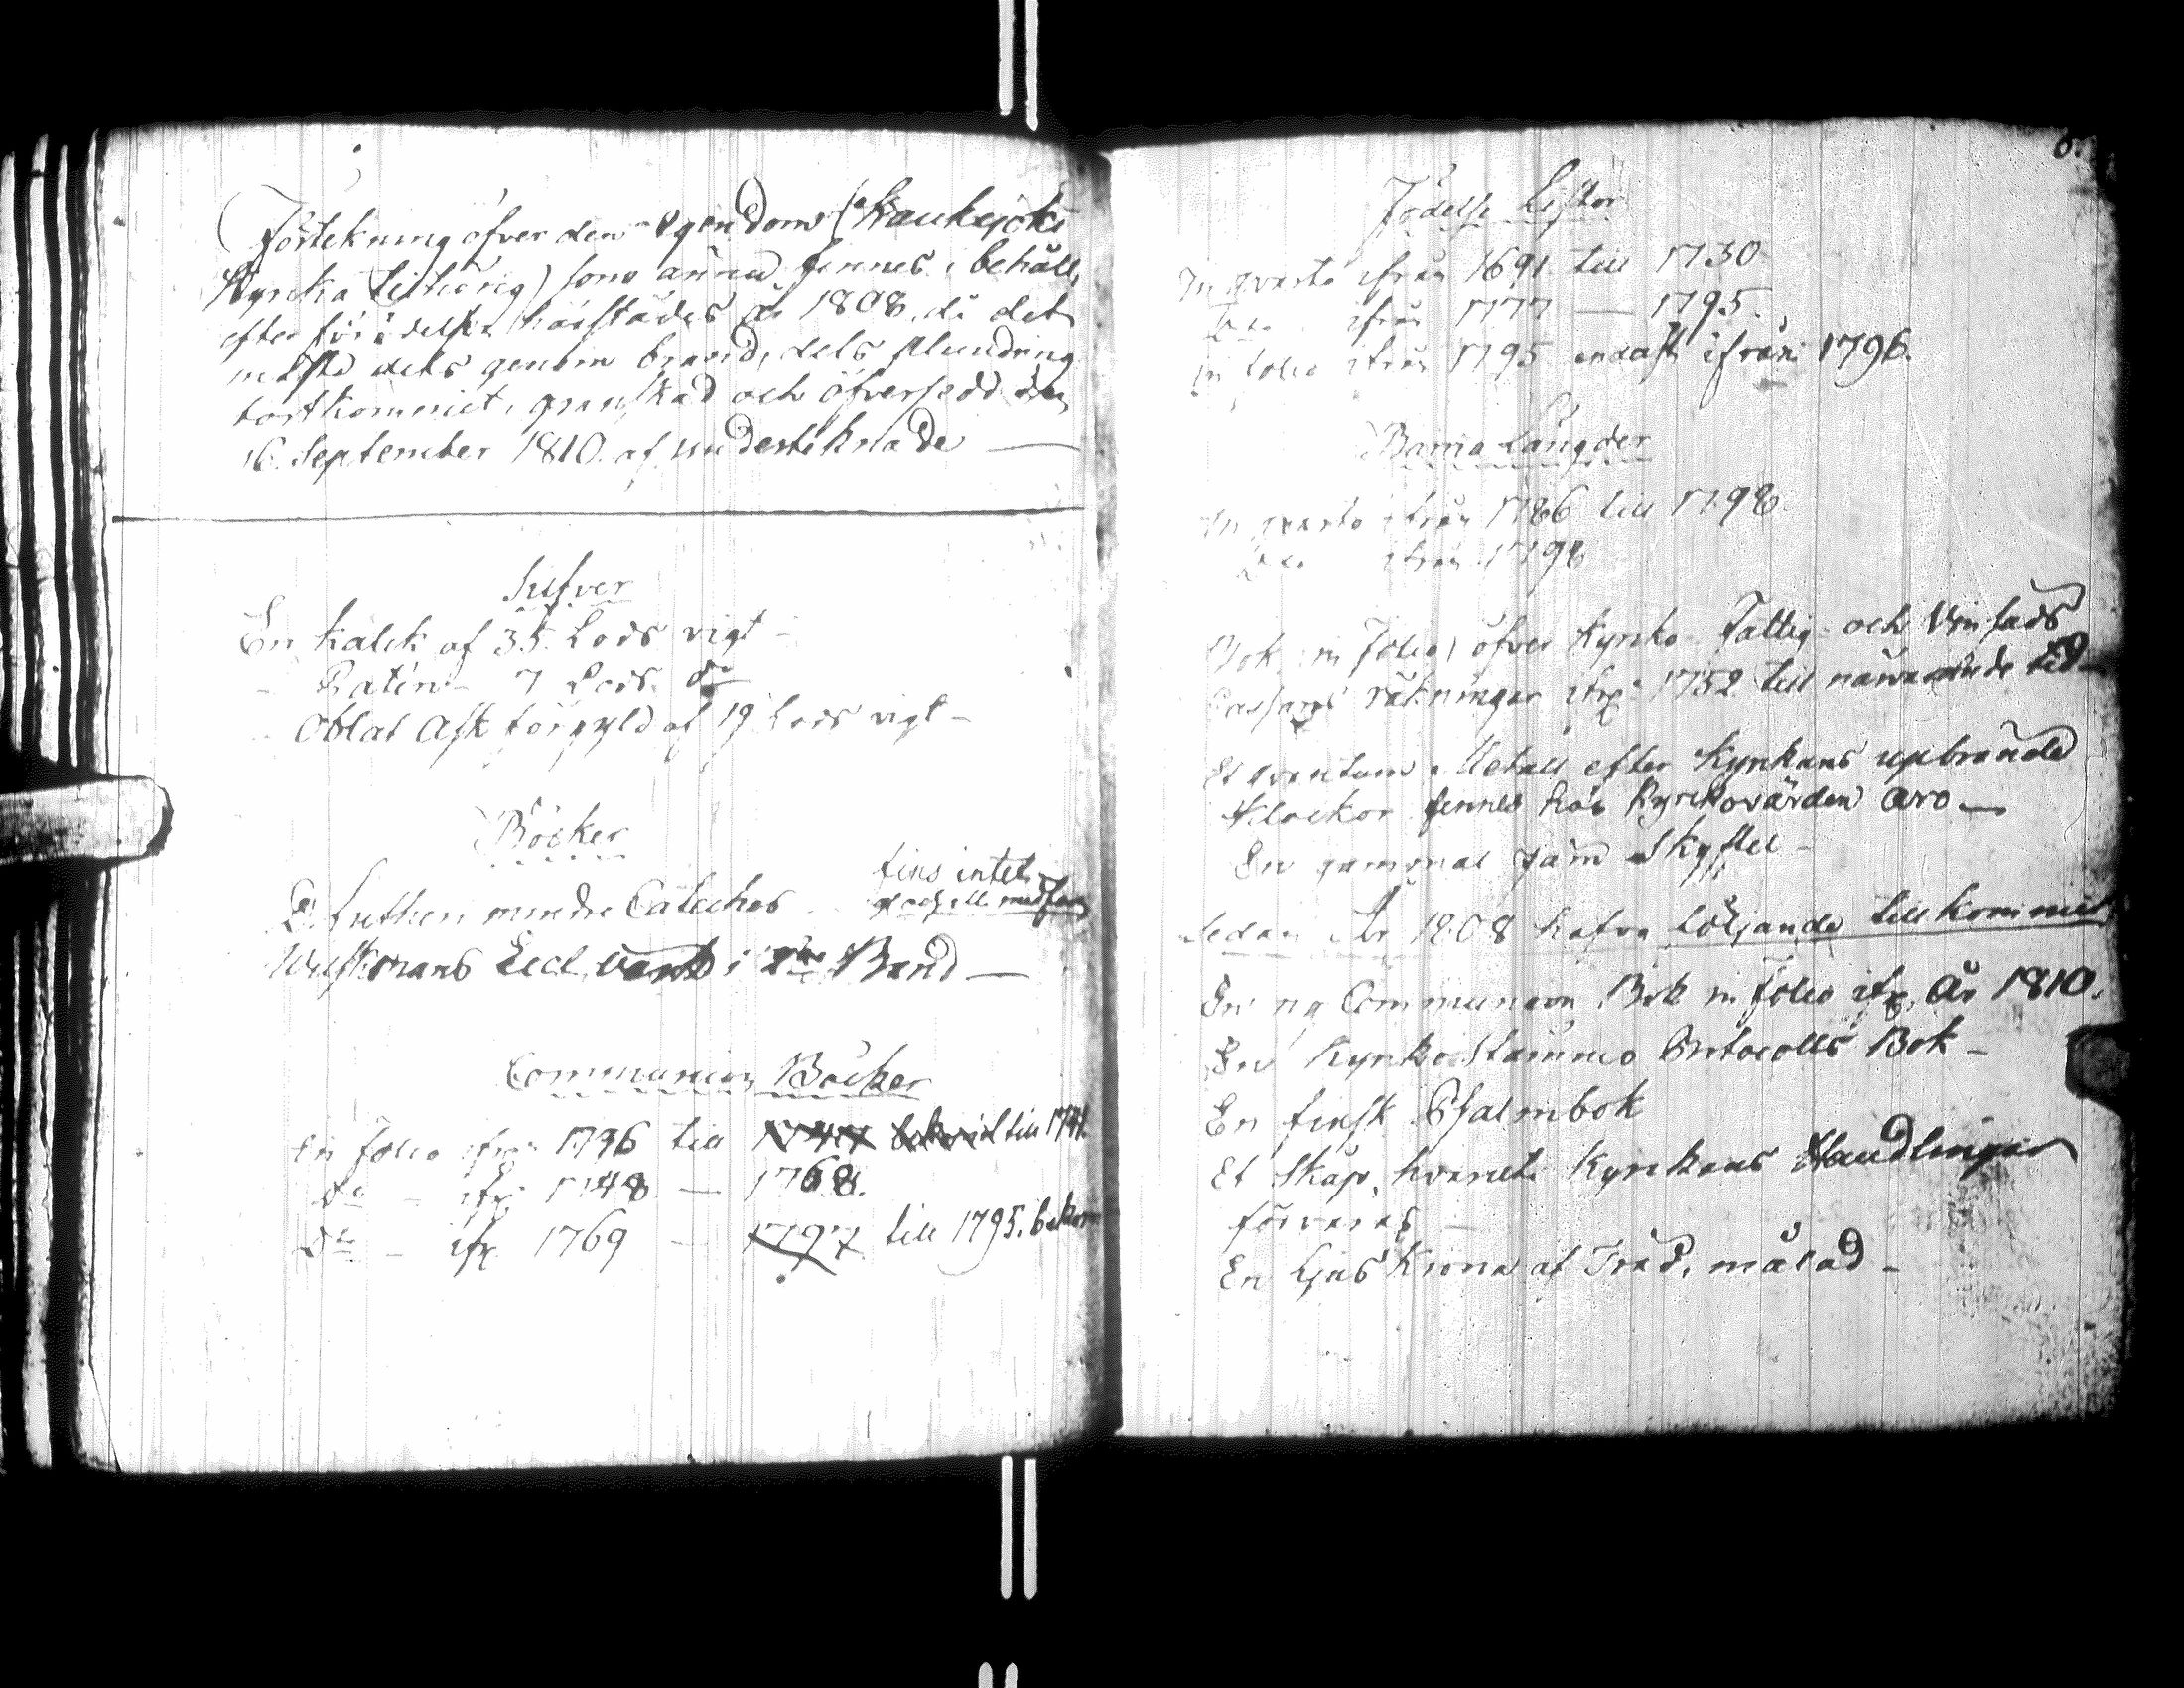 Förtekning öfver den egendom (Kauhajoki
Kyrka tilhörig) som ännu finnes i behåll,
efter förödelsen härstädes år 1808, då det
mesta dels genom brand, dels plundring
bortkommit, granskad och öfversedd den
16 September 1810 af undertecknade —
Silfver
En kalck af 35 Lods vigt -
- Patén - 7 Lods d:o
- Oblat Ask förgyld af 19 Lods vigt -
Böcker
D. Lutheri mindre Cateches - fins intet
Wilskmans Eccl. i Band —
Communion Böcker
In folio ifr: 1736 till 1747 till 1741
D:o - ifr: 1748 — 1768.
D:o - ifr 1769 — 1797 till 1795. bekom
Födelse Listor
In qvarto ifrån 1691 till 1730
D:o ifrån 1777 — 1795.
in folio ifrån 1795 endast ifrån 1796.
Barna Längder
In qvarto ifrån 1786 till 1798.
D:o ifrån 1798
Bok (in folio) öfver Kyrko- Fattig- och Vinsäds
Cassans räkningar ifr: 1752 till närwarande tid —
Et qvantum Metall efter Kyrkans upbrände
Klockor finnes hos Kyrkovärden Aro —
En gammal järn Skyffel -
Sedan År 1808 hafva följande tillkommit
En ny Communion Bok in folio ifr. År 1810.
En Kyrko Stämmo Protocolls Bok -
En finsk Psalmbok
Et Skåp, hvaruti Kyrkans Handlingar
förvaras —
En Ljus Krona af Träd, målad -